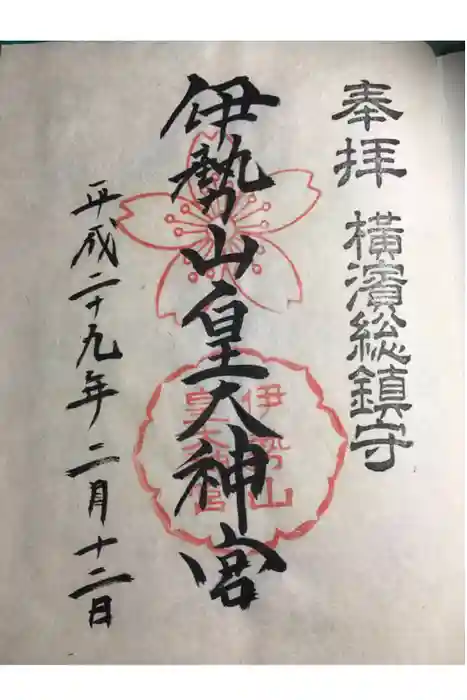 奉拝 横濱総鎮守
伊勢山皇大神宮
伊勢山
皇大神宮
平成二十九年二月十二日